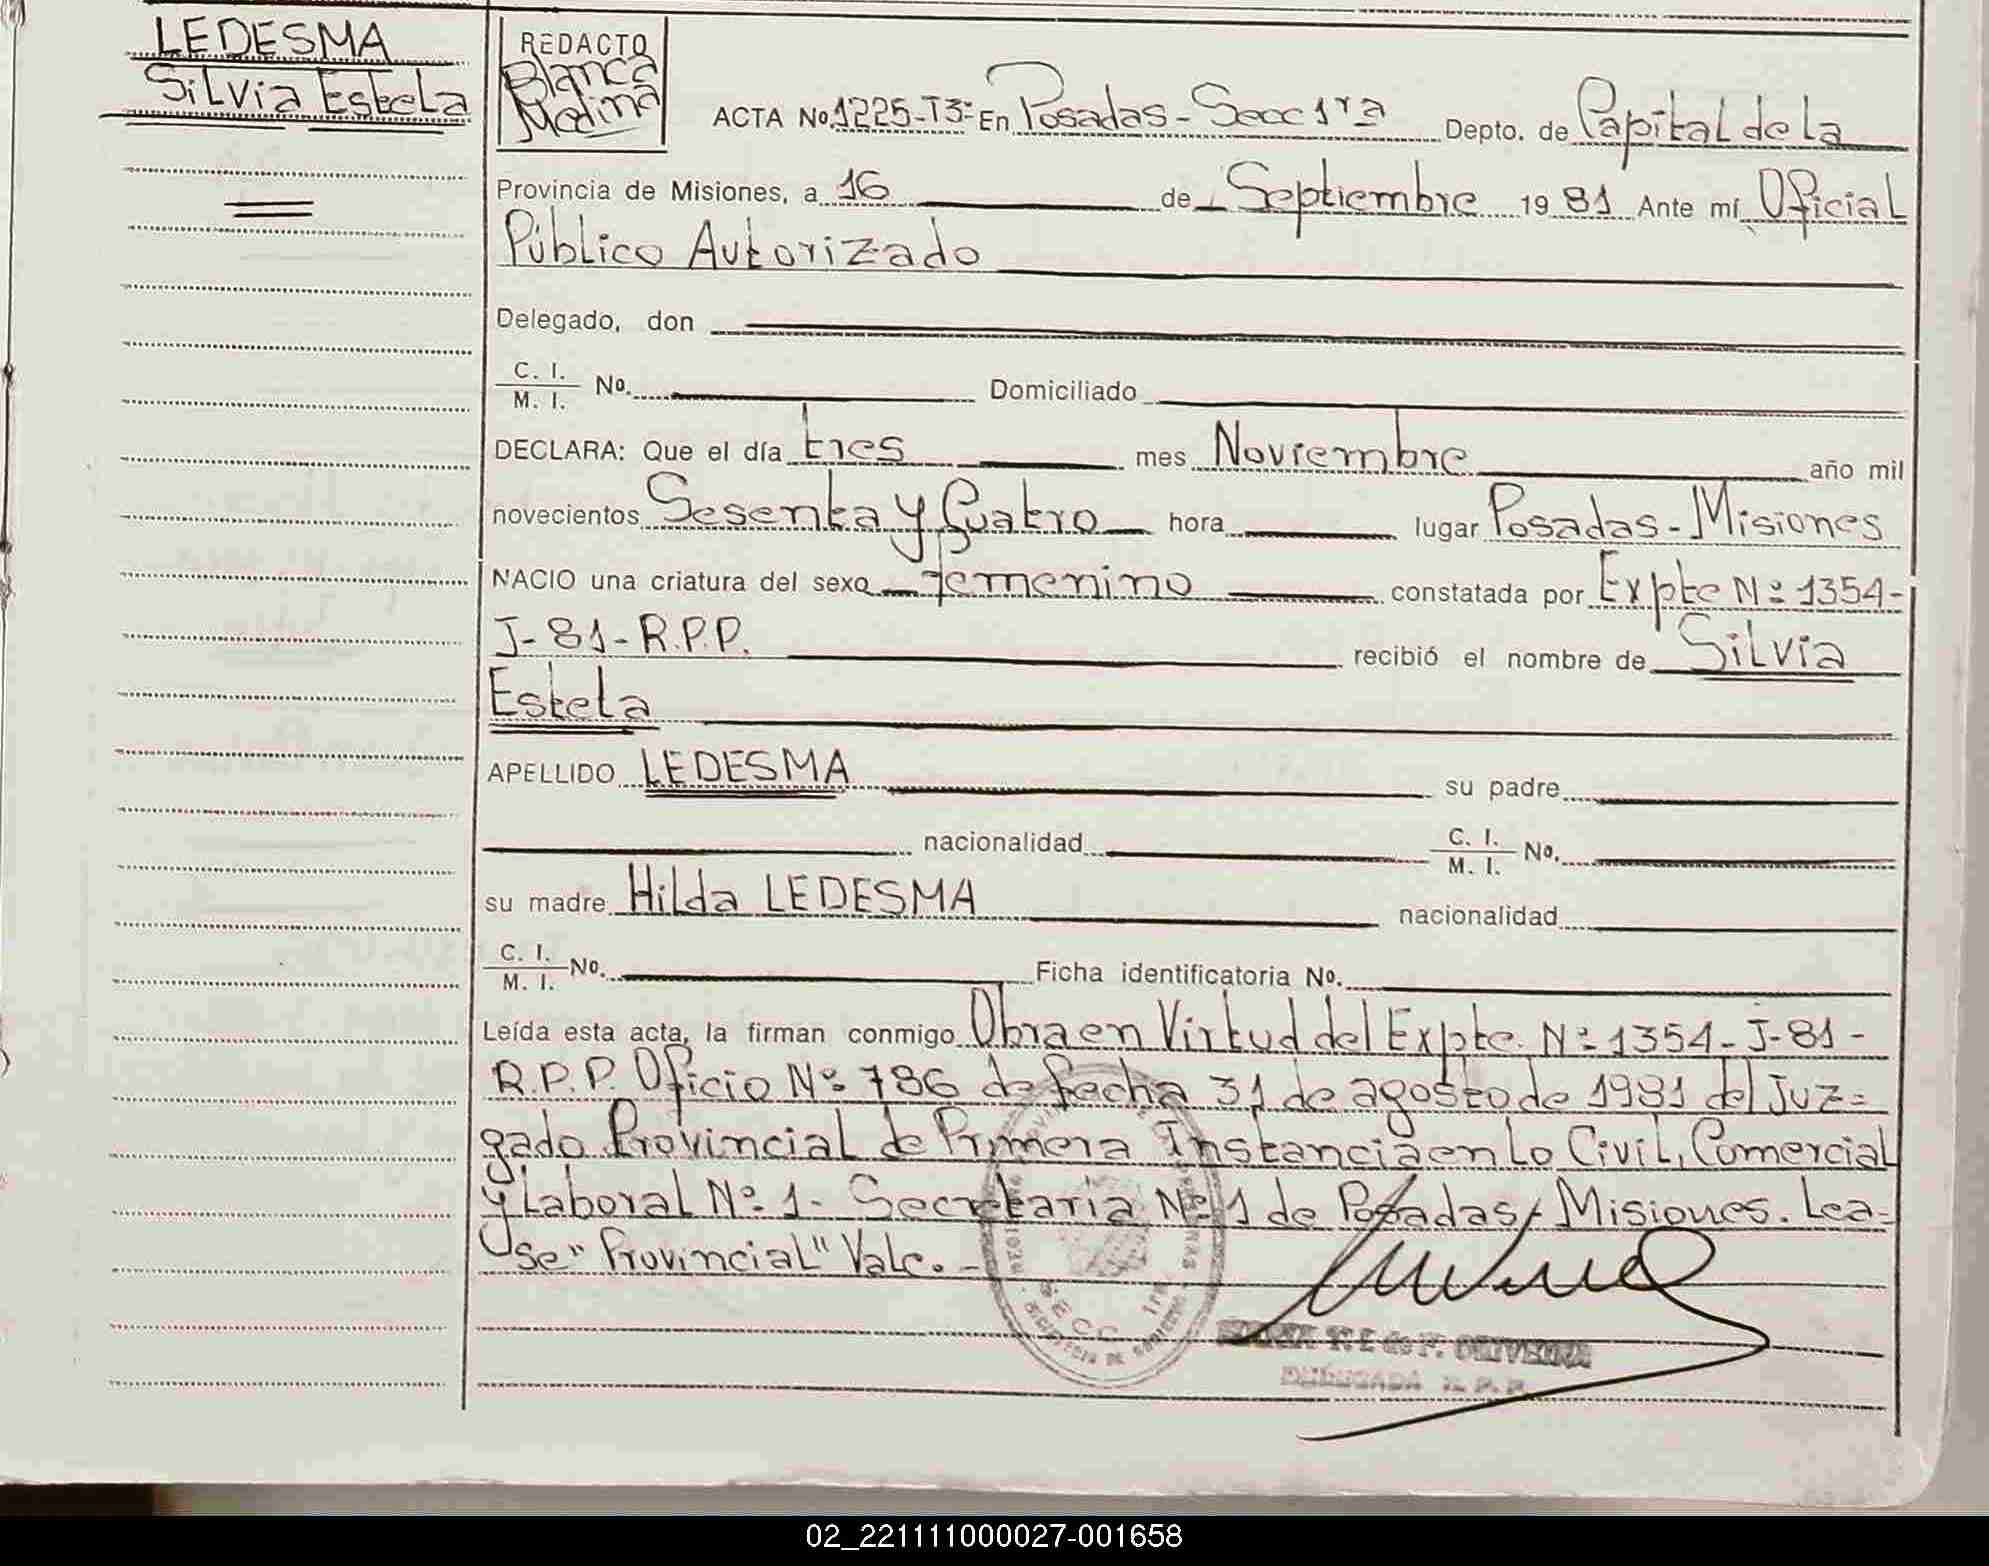 LEDESMA
Silvia Estela
REDACTO
Blanca
Medina
ACTA No. 1225-T3- En Posadas - Secc 1ra Depto. de Capital de la
Provincia de Misiones, a 16 de Septiembre 19 81 Ante mí Oficial
Público Autorizado
Delegado, don
C. I.
M. I. No. Domiciliado
DECLARA: Que el día tres mes Noviembre año mil
novecientos Sesenta y Cuatro hora lugar Posadas - Misiones
NACIO una criatura del sexo femenino constatada por Expte Nº 1354-
J-81-R.P.P. recibió el nombre de Silvia
Estela
APELLIDO LEDESMA su padre
nacionalidad C. I. M. I. No.
su madre Hilda LEDESMA nacionalidad
C. I. M. I. No. Ficha identificatoria No.
Leída esta acta, la firman conmigo Obra en Virtud del Expte. Nº 1354-J-81-
R.P.P. Oficio Nº 786 de fecha 31 de agosto de 1981 del Juz=
gado Provincial de Primera Instancia en Lo Civil, Comercial
y Laboral Nº 1- Secretaria Nº 1 de Posadas, Misiones. Lea=
se "Provincial" Vale.-
SECC. 1ra
OLIVEIRA
DELEGADA R. P. P.
02_221111000027-001658